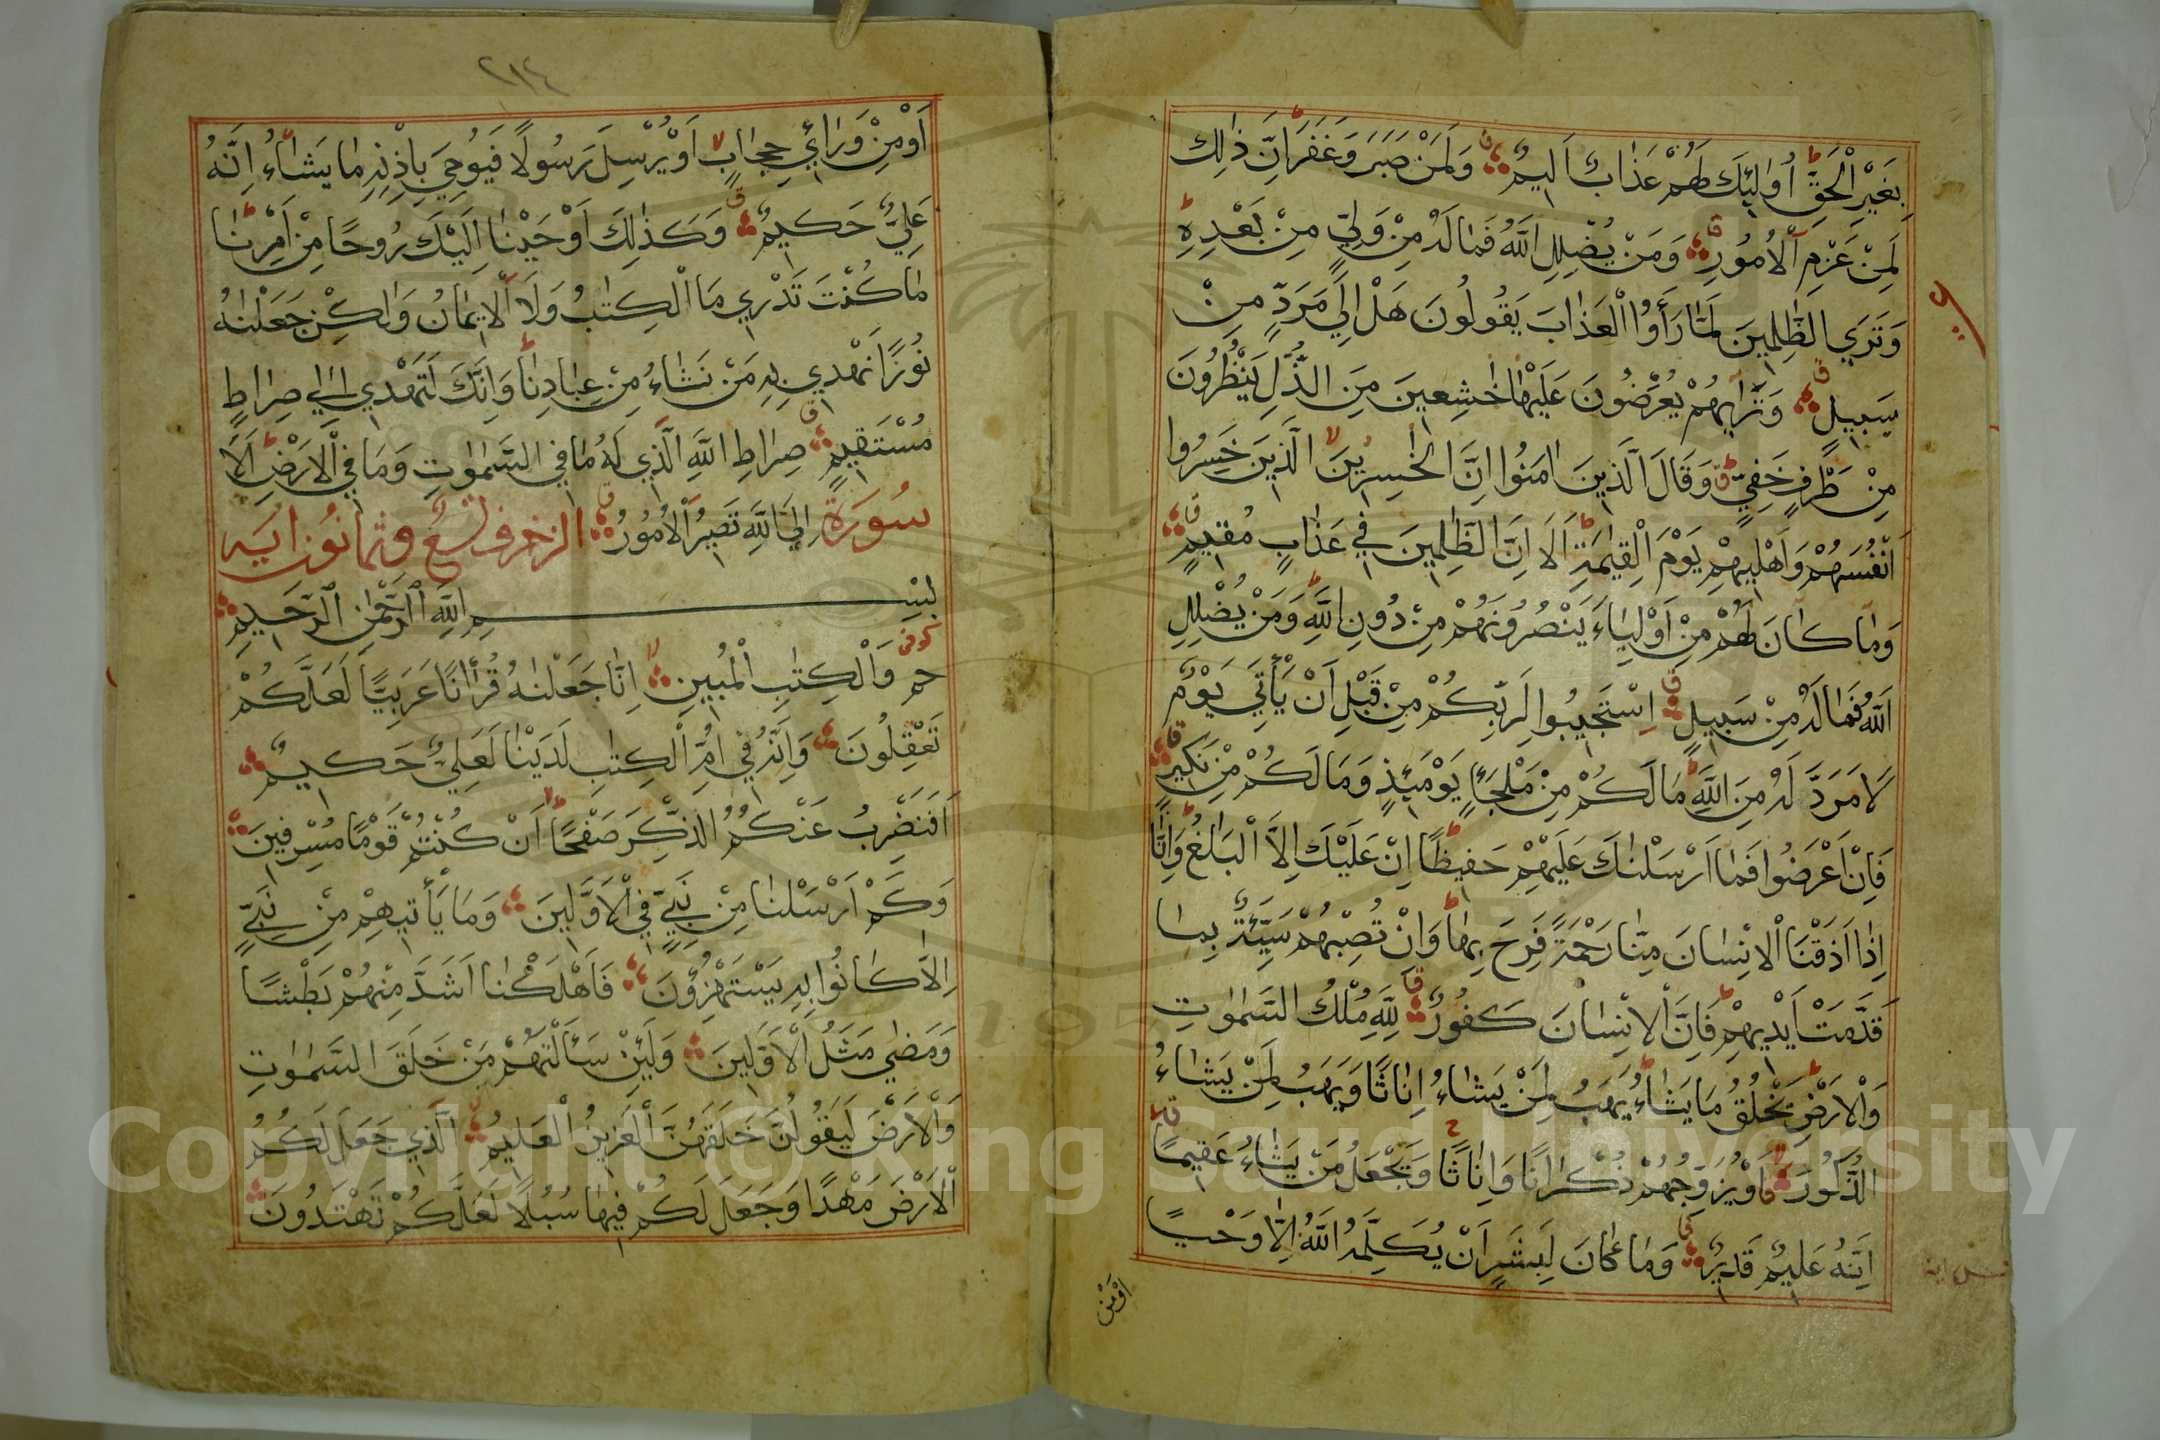 بِغَيْرِ الْحَقِّ اُولٰئِكَ لَهُمْ عَذَابٌ اَلِيمٌ وَلَمَنْ صَبَرَ وَغَفَرَ اِنَّ ذٰلِكَ
لَمِنْ عَزْمِ الْاُمُورِ وَمَنْ يُضْلِلِ اللّٰهُ فَمَا لَهُ مِنْ وَلِيٍّ مِنْ بَعْدِهِ
وَتَرَي الظّٰلِمِينَ لَمَّا رَأَوُا الْعَذَابَ يَقُولُونَ هَلْ اِلٰي مَرَدٍّ مِنْ
سَبِيلٍ وَتَرٰيهُمْ يُعْرَضُونَ عَلَيْهَا خٰشِعِينَ مِنَ الذُّلِّ يَنْظُرُونَ
مِنْ طَرْفٍ خَفِيٍّ وَقَالَ الَّذِينَ اٰمَنُوا اِنَّ الْخٰسِرِينَ الَّذِينَ خَسِرُوا
اَنْفُسَهُمْ وَاَهْلِيهِمْ يَوْمَ الْقِيٰمَةِ اَلَا اِنَّ الظّٰلِمِينَ فِي عَذَابٍ مُقِيمٍ
وَمَا كَانَ لَهُمْ مِنْ اَوْلِيَاءَ يَنْصُرُونَهُمْ مِنْ دُونِ اللّٰهِ وَمَنْ يُضْلِلِ
اللّٰهُ فَمَا لَهُ مِنْ سَبِيلٍ اِسْتَجِيبُوا لِرَبِّكُمْ مِنْ قَبْلِ اَنْ يَأْتِيَ يَوْمٌ
لَا مَرَدَّ لَهُ مِنَ اللّٰهِ مَا لَكُمْ مِنْ مَلْجَأٍ يَوْمَئِذٍ وَمَا لَكُمْ مِنْ نَكِيرٍ
فَاِنْ اَعْرَضُوا فَمَا اَرْسَلْنٰكَ عَلَيْهِمْ حَفِيظًا اِنْ عَلَيْكَ اِلَّا الْبَلٰغُ وَاِنَّا
اِذَا اَذَقْنَا الْاِنْسَانَ مِنَّا رَحْمَةً فَرِحَ بِهَا وَاِنْ تُصِبْهُمْ سَيِّئَةٌ بِمَا
قَدَّمَتْ اَيْدِيهِمْ فَاِنَّ الْاِنْسَانَ كَفُورٌ لِلّٰهِ مُلْكُ السَّمٰوٰتِ
وَالْاَرْضِ يَخْلُقُ مَا يَشَاءُ يَهَبُ لِمَنْ يَشَاءُ اِنَاثًا وَيَهَبُ لِمَنْ يَشَاءُ
الذُّكُورَ اَوْ يُزَوِّجُهُمْ ذُكْرَانًا وَاِنَاثًا وَيَجْعَلُ مَنْ يَشَاءُ عَقِيمًا
اِنَّهُ عَلِيمٌ قَدِيرٌ وَمَا كَانَ لِبَشَرٍ اَنْ يُكَلِّمَهُ اللّٰهُ اِلَّا وَحْيًا
اَوْ مِنْ
٢١٤
اَوْ مِنْ وَرَائِ حِجَابٍ اَوْ يُرْسِلَ رَسُولًا فَيُوحِيَ بِاِذْنِهِ مَا يَشَاءُ اِنَّهُ
عَلِيٌّ حَكِيمٌ وَكَذٰلِكَ اَوْحَيْنَا اِلَيْكَ رُوحًا مِنْ اَمْرِنَا
مَا كُنْتَ تَدْرِي مَا الْكِتٰبُ وَلَا الْاِيمَانُ وَلٰكِنْ جَعَلْنٰهُ
نُورًا نَهْدِي بِهِ مَنْ نَشَاءُ مِنْ عِبَادِنَا وَاِنَّكَ لَتَهْدِي اِلٰي صِرَاطٍ
مُسْتَقِيمٍ صِرَاطِ اللّٰهِ الَّذِي لَهُ مَا فِي السَّمٰوٰتِ وَمَا فِي الْاَرْضِ اَلَا
اِلَي اللّٰهِ تَصِيرُ الْاُمُورُ
سُورَة الزخرف تسع وثمانون اية
بِسْمِ اللّٰهِ الرَّحْمٰنِ الرَّحِيمِ
كوفى
حم وَالْكِتٰبِ الْمُبِينِ اِنَّا جَعَلْنٰهُ قُرْاٰنًا عَرَبِيًّا لَعَلَّكُمْ
تَعْقِلُونَ وَاِنَّهُ فِي اُمِّ الْكِتٰبِ لَدَيْنَا لَعَلِيٌّ حَكِيمٌ
اَفَنَضْرِبُ عَنْكُمُ الذِّكْرَ صَفْحًا اَنْ كُنْتُمْ قَوْمًا مُسْرِفِينَ
وَكَمْ اَرْسَلْنَا مِنْ نَبِيٍّ فِي الْاَوَّلِينَ وَمَا يَأْتِيهِمْ مِنْ نَبِيٍّ
اِلَّا كَانُوا بِهِ يَسْتَهْزِؤُنَ فَاَهْلَكْنَا اَشَدَّ مِنْهُمْ بَطْشًا
وَمَضٰي مَثَلُ الْاَوَّلِينَ وَلَئِنْ سَأَلْتَهُمْ مَنْ خَلَقَ السَّمٰوٰتِ
وَالْاَرْضَ لَيَقُولُنَّ خَلَقَهُنَّ الْعَزِيزُ الْعَلِيمُ الَّذِي جَعَلَ لَكُمُ
الْاَرْضَ مَهْدًا وَجَعَلَ لَكُمْ فِيهَا سُبُلًا لَعَلَّكُمْ تَهْتَدُونَ
Copyright © King Saud University